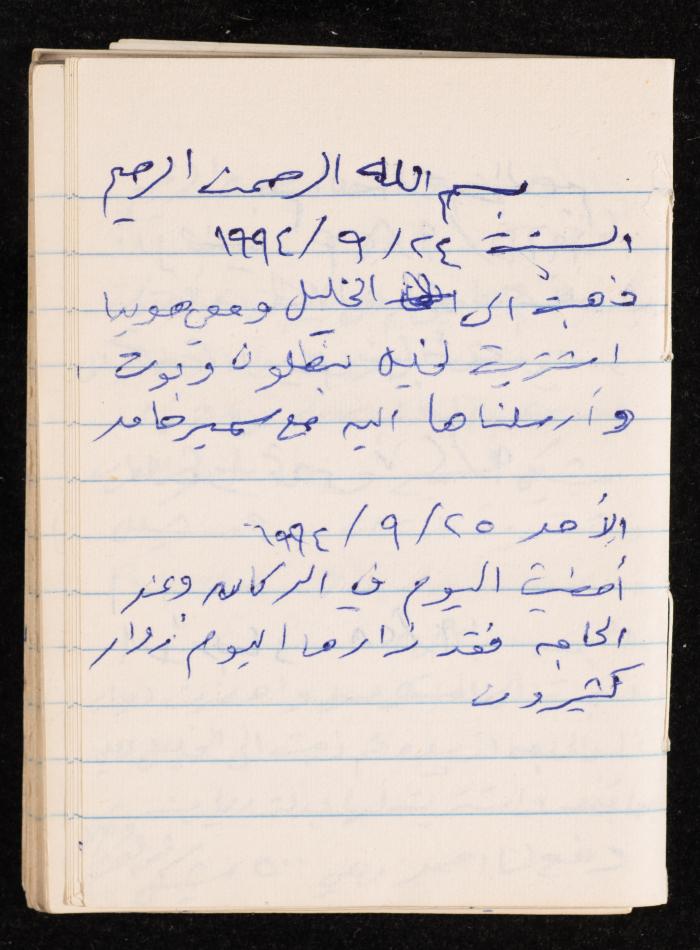 بسم الله الرحمن الرحيم
السبت ٢٤/٩/١٩٩٤
ذهبت الى الخليل ومعي هوليا
اشتريت لخيه بنطلون وبوت
وأرسلناها اليه مع سمير حامد
الأحد ٢٥/٩/١٩٩٤
أمضيت اليوم في الدكان وعند
الحاجه فقد زارها اليوم زوار
كثيرون